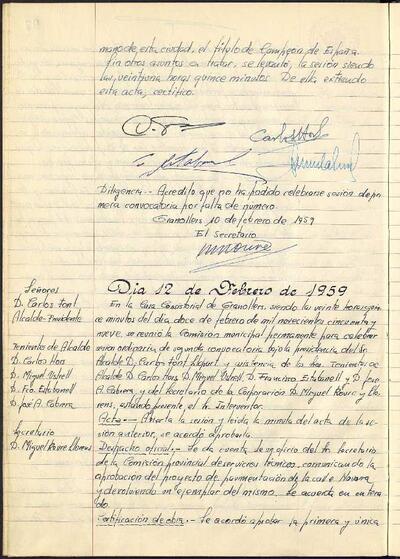 mano de esta ciudad, el título de Campeon de España.
Sin otros asuntos a tratar, se levantó la sesión siendo
las veintiuna horas quince minutos. De ella extiendo
esta acta, certifico.
Diligencia.- Acredito que no ha podido celebrarse sesión de pri-
mera convocatoria por falta de número.
Granollers 10 de febrero de 1959
El Secretario
Señores
D. Carlos Font
Alcalde-Presidente
Tenientes de Alcalde
D. Carlos Hors
D. Miguel
D. Fco. Estabanell
D. José A. Cabrera
Secretario
D. Miguel Roure Llorens
Dia 12 de Febrero de 1959
En la Casa Consistorial de Granollers, siendo las veinte horas quin-
ce minutos del día doce de febrero de mil novecientos cincuenta y
nueve, se reunió la Comisión municipal permanente para celebrar
sesión ordinaria de segunda convocatoria bajo la presidencia del Sr.
Alcalde D. Carlos Font Llopart y asistencia de los Sres. Tenientes de
Alcalde D. Carlos Hors, D. Miguel D. Francisco Estabanell y D. José
A. Cabrera y del Secretario de la Corporación D. Miguel Roure y Llo-
rens, estando presente el Sr. Interventor.
Acta.- Abierta la sesión y leida la minuta del acta de la se-
sión anterior, se acordó aprobarla.
Despacho oficial.- Se da cuenta de un oficio del Sr. Secretario
de la Comisión provincial de servicios técnicos, comunicando la
aprobación del proyecto de pavimentación de la calle Navarra
y devolviendo un ejemplar del mismo. Se acuerda en entera-
do.
Certificación de obra.- Se acordó aprobar la primera y única